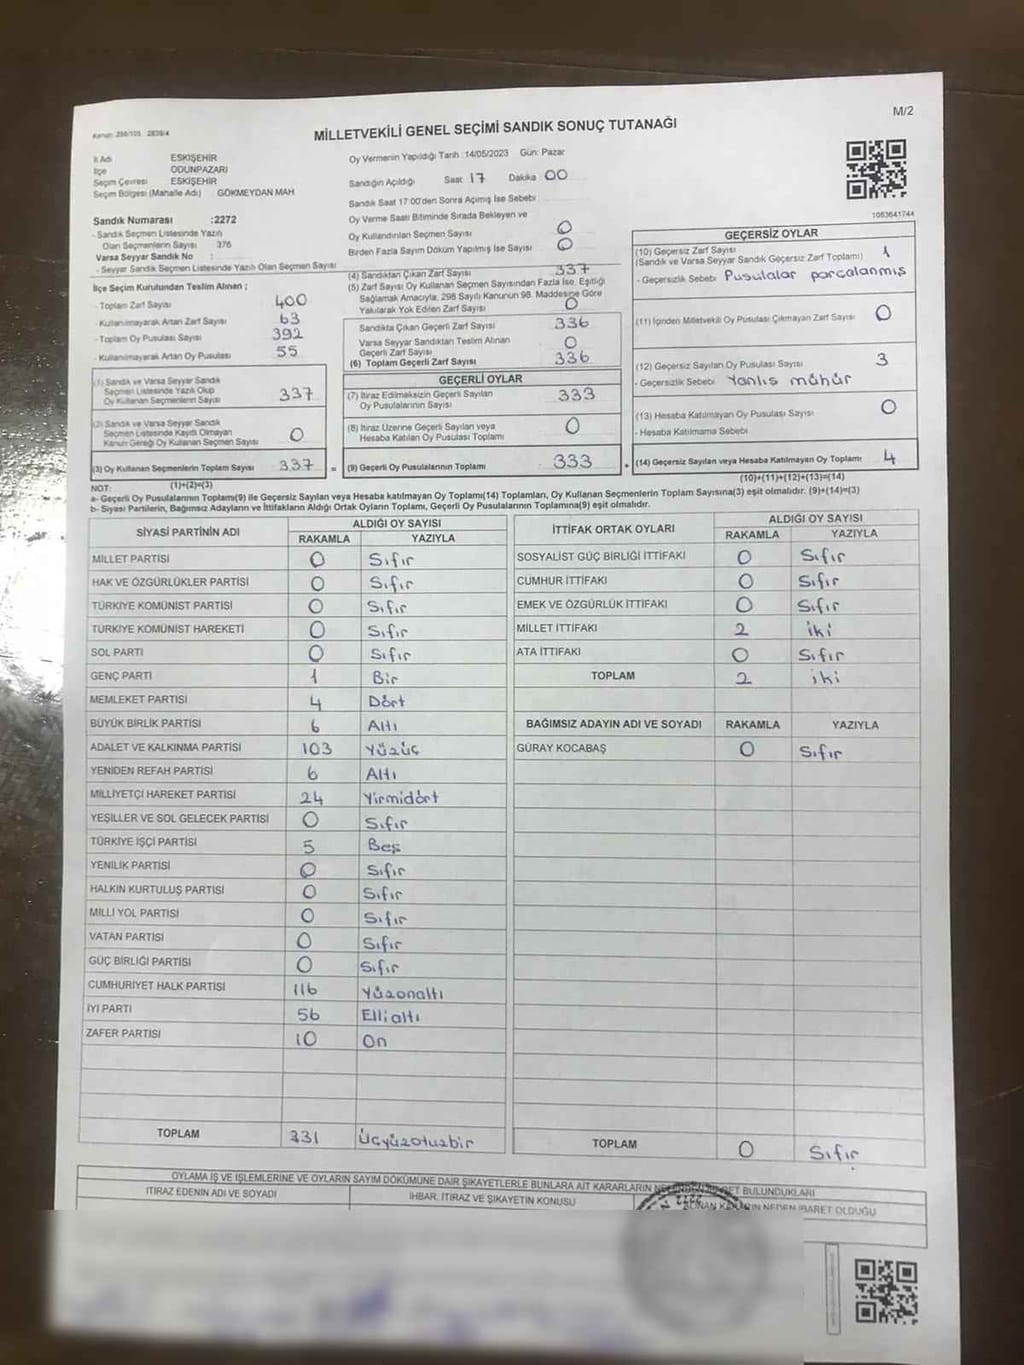 M/2
Kanun: 298/105 2839/4
MİLLETVEKİLİ GENEL SEÇİMİ SANDIK SONUÇ TUTANAĞI
İl Adı ESKİŞEHİR
İlçe ODUNPAZARI
Seçim Çevresi ESKİŞEHİR
Seçim Bölgesi (Mahalle Adı) GÖKMEYDAN MAH
Oy Vermenin Yapıldığı Tarih :14/05/2023 Gün: Pazar
Sandığın Açıldığı Saat 17 Dakika 00
Sandık Saat 17:00'den Sonra Açımış İse Sebebi
Oy Verme Saati Bitiminde Sırada Bekleyen ve
Oy Kullandırılan Seçmen Sayısı 0
Birden Fazla Sayım Döküm Yapılmış İse Sayısı 0
1083641744
Sandık Numarası :2272
- Sandık Seçmen Listesinde Yazılı
Olan Seçmenlerin Sayısı 376
Varsa Seyyar Sandık No :
- Seyyar Sandık Seçmen Listesinde Yazılı Olan Seçmen Sayısı
İlçe Seçim Kurulundan Teslim Alınan :
- Toplam Zarf Sayısı 400
- Kullanılmayarak Artan Zarf Sayısı 63
- Toplam Oy Pusulası Sayısı 392
- Kullanılmayarak Artan Oy Pusulası 55
(1) Sandık ve Varsa Seyyar Sandık
Seçmen Listesinde Yazılı Olup
Oy Kullanan Seçmenlerin Sayısı 337
(2) Sandık ve Varsa Seyyar Sandık
Seçmen Listesinde Kaydı Olmayan
Kanun Gereği Oy Kullanan Seçmen Sayısı 0
(3) Oy Kullanan Seçmenlerin Toplam Sayısı 337 =
(1)+(2)=(3)
(4) Sandıktan Çıkan Zarf Sayısı 337
(5) Zarf Sayısı Oy Kullanan Seçmen Sayısından Fazla İse, Eşitliği
Sağlamak Amacıyla, 298 Sayılı Kanunun 98. Maddesine Göre
Yakılarak Yok Edilen Zarf Sayısı 0
Sandıkta Çıkan Geçerli Zarf Sayısı 336
Varsa Seyyar Sandıktan Teslim Alınan
Geçerli Zarf Sayısı 0
(6) Toplam Geçerli Zarf Sayısı 336
GEÇERLİ OYLAR
(7) İtiraz Edilmeksizin Geçerli Sayılan
Oy Pusulalarının Sayısı 333
(8) İtiraz Üzerine Geçerli Sayılan veya
Hesaba Katılan Oy Pusulası Toplamı 0
(9) Geçerli Oy Pusulalarının Toplamı 333 +
GEÇERSİZ OYLAR
(10) Geçersiz Zarf Sayısı 1
(Sandık ve Varsa Seyyar Sandık Geçersiz Zarf Toplamı)
- Geçersizlik Sebebi Pusulalar parçalanmış
(11) İçinden Milletvekili Oy Pusulası Çıkmayan Zarf Sayısı 0
(12) Geçersiz Sayılan Oy Pusulası Sayısı 3
- Geçersizlik Sebebi Yanlış mühür
(13) Hesaba Katılmayan Oy Pusulası Sayısı 0
- Hesaba Katılmama Sebebi
(14) Geçersiz Sayılan veya Hesaba Katılmayan Oy Toplamı 4
(10)+(11)+(12)+(13)=(14)
NOT:
a- Geçerli Oy Pusulalarının Toplamı(9) ile Geçersiz Sayılan veya Hesaba katılmayan Oy Toplamı(14) Toplamları, Oy Kullanan Seçmenlerin Toplam Sayısına(3) eşit olmalıdır. (9)+(14)=(3)
b- Siyasi Partilerin, Bağımsız Adayların ve İttifakların Aldığı Ortak Oyların Toplamı, Geçerli Oy Pusulalarının Toplamına(9) eşit olmalıdır.
SİYASİ PARTİNİN ADI ALDIĞI OY SAYISI
RAKAMLA YAZIYLA
MİLLET PARTİSİ 0 Sıfır
HAK VE ÖZGÜRLÜKLER PARTİSİ 0 Sıfır
TÜRKİYE KOMÜNİST PARTİSİ 0 Sıfır
TÜRKİYE KOMÜNİST HAREKETİ 0 Sıfır
SOL PARTİ 0 Sıfır
GENÇ PARTİ 1 Bir
MEMLEKET PARTİSİ 4 Dört
BÜYÜK BİRLİK PARTİSİ 6 Altı
ADALET VE KALKINMA PARTİSİ 103 Yüzüç
YENİDEN REFAH PARTİSİ 6 Altı
MİLLİYETÇİ HAREKET PARTİSİ 24 Yirmidört
YEŞİLLER VE SOL GELECEK PARTİSİ 0 Sıfır
TÜRKİYE İŞÇİ PARTİSİ 5 Beş
YENİLİK PARTİSİ 0 Sıfır
HALKIN KURTULUŞ PARTİSİ 0 Sıfır
MİLLİ YOL PARTİSİ 0 Sıfır
VATAN PARTİSİ 0 Sıfır
GÜÇ BİRLİĞİ PARTİSİ 0 Sıfır
CUMHURİYET HALK PARTİSİ 116 Yüzonaltı
İYİ PARTİ 56 Elli altı
ZAFER PARTİSİ 10 On
TOPLAM 331 Üçyüzotuzbir
İTTİFAK ORTAK OYLARI ALDIĞI OY SAYISI
RAKAMLA YAZIYLA
SOSYALİST GÜÇ BİRLİĞİ İTTİFAKI 0 Sıfır
CUMHUR İTTİFAKI 0 Sıfır
EMEK VE ÖZGÜRLÜK İTTİFAKI 0 Sıfır
MİLLET İTTİFAKI 2 iki
ATA İTTİFAKI 0 Sıfır
TOPLAM 2 iki
BAĞIMSIZ ADAYIN ADI VE SOYADI RAKAMLA YAZIYLA
GÜRAY KOCABAŞ 0 Sıfır
TOPLAM 0 Sıfır
OYLAMA İŞ VE İŞLEMLERİNE VE OYLARIN SAYIM DÖKÜMÜNE DAİR ŞİKAYETLERLE BUNLARA AİT KARARLARIN BULUNDUKLARI
İTİRAZ EDENİN ADI VE SOYADI İHBAR, İTİRAZ VE ŞİKAYETİN KONUSU NEDEN İBARET OLDUĞU